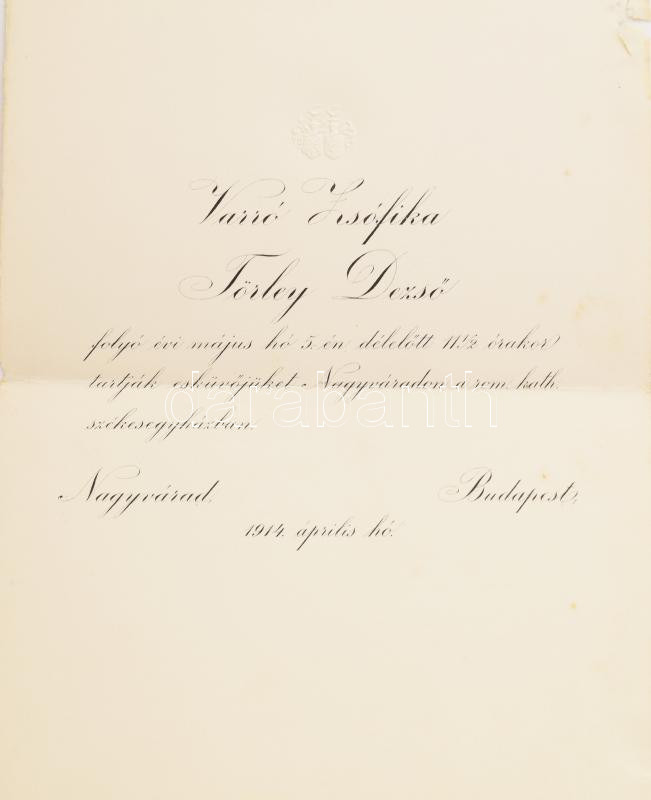 Varró Zsófika
Törley Dezső
folyó évi május hó 5.-én délelőtt 11 1/2 órakor
tartják esküvőjüket Nagyváradon a rom. kath.
darabanth
székesegyházban.
Nagyvárad, Budapest,
1914. április hó.